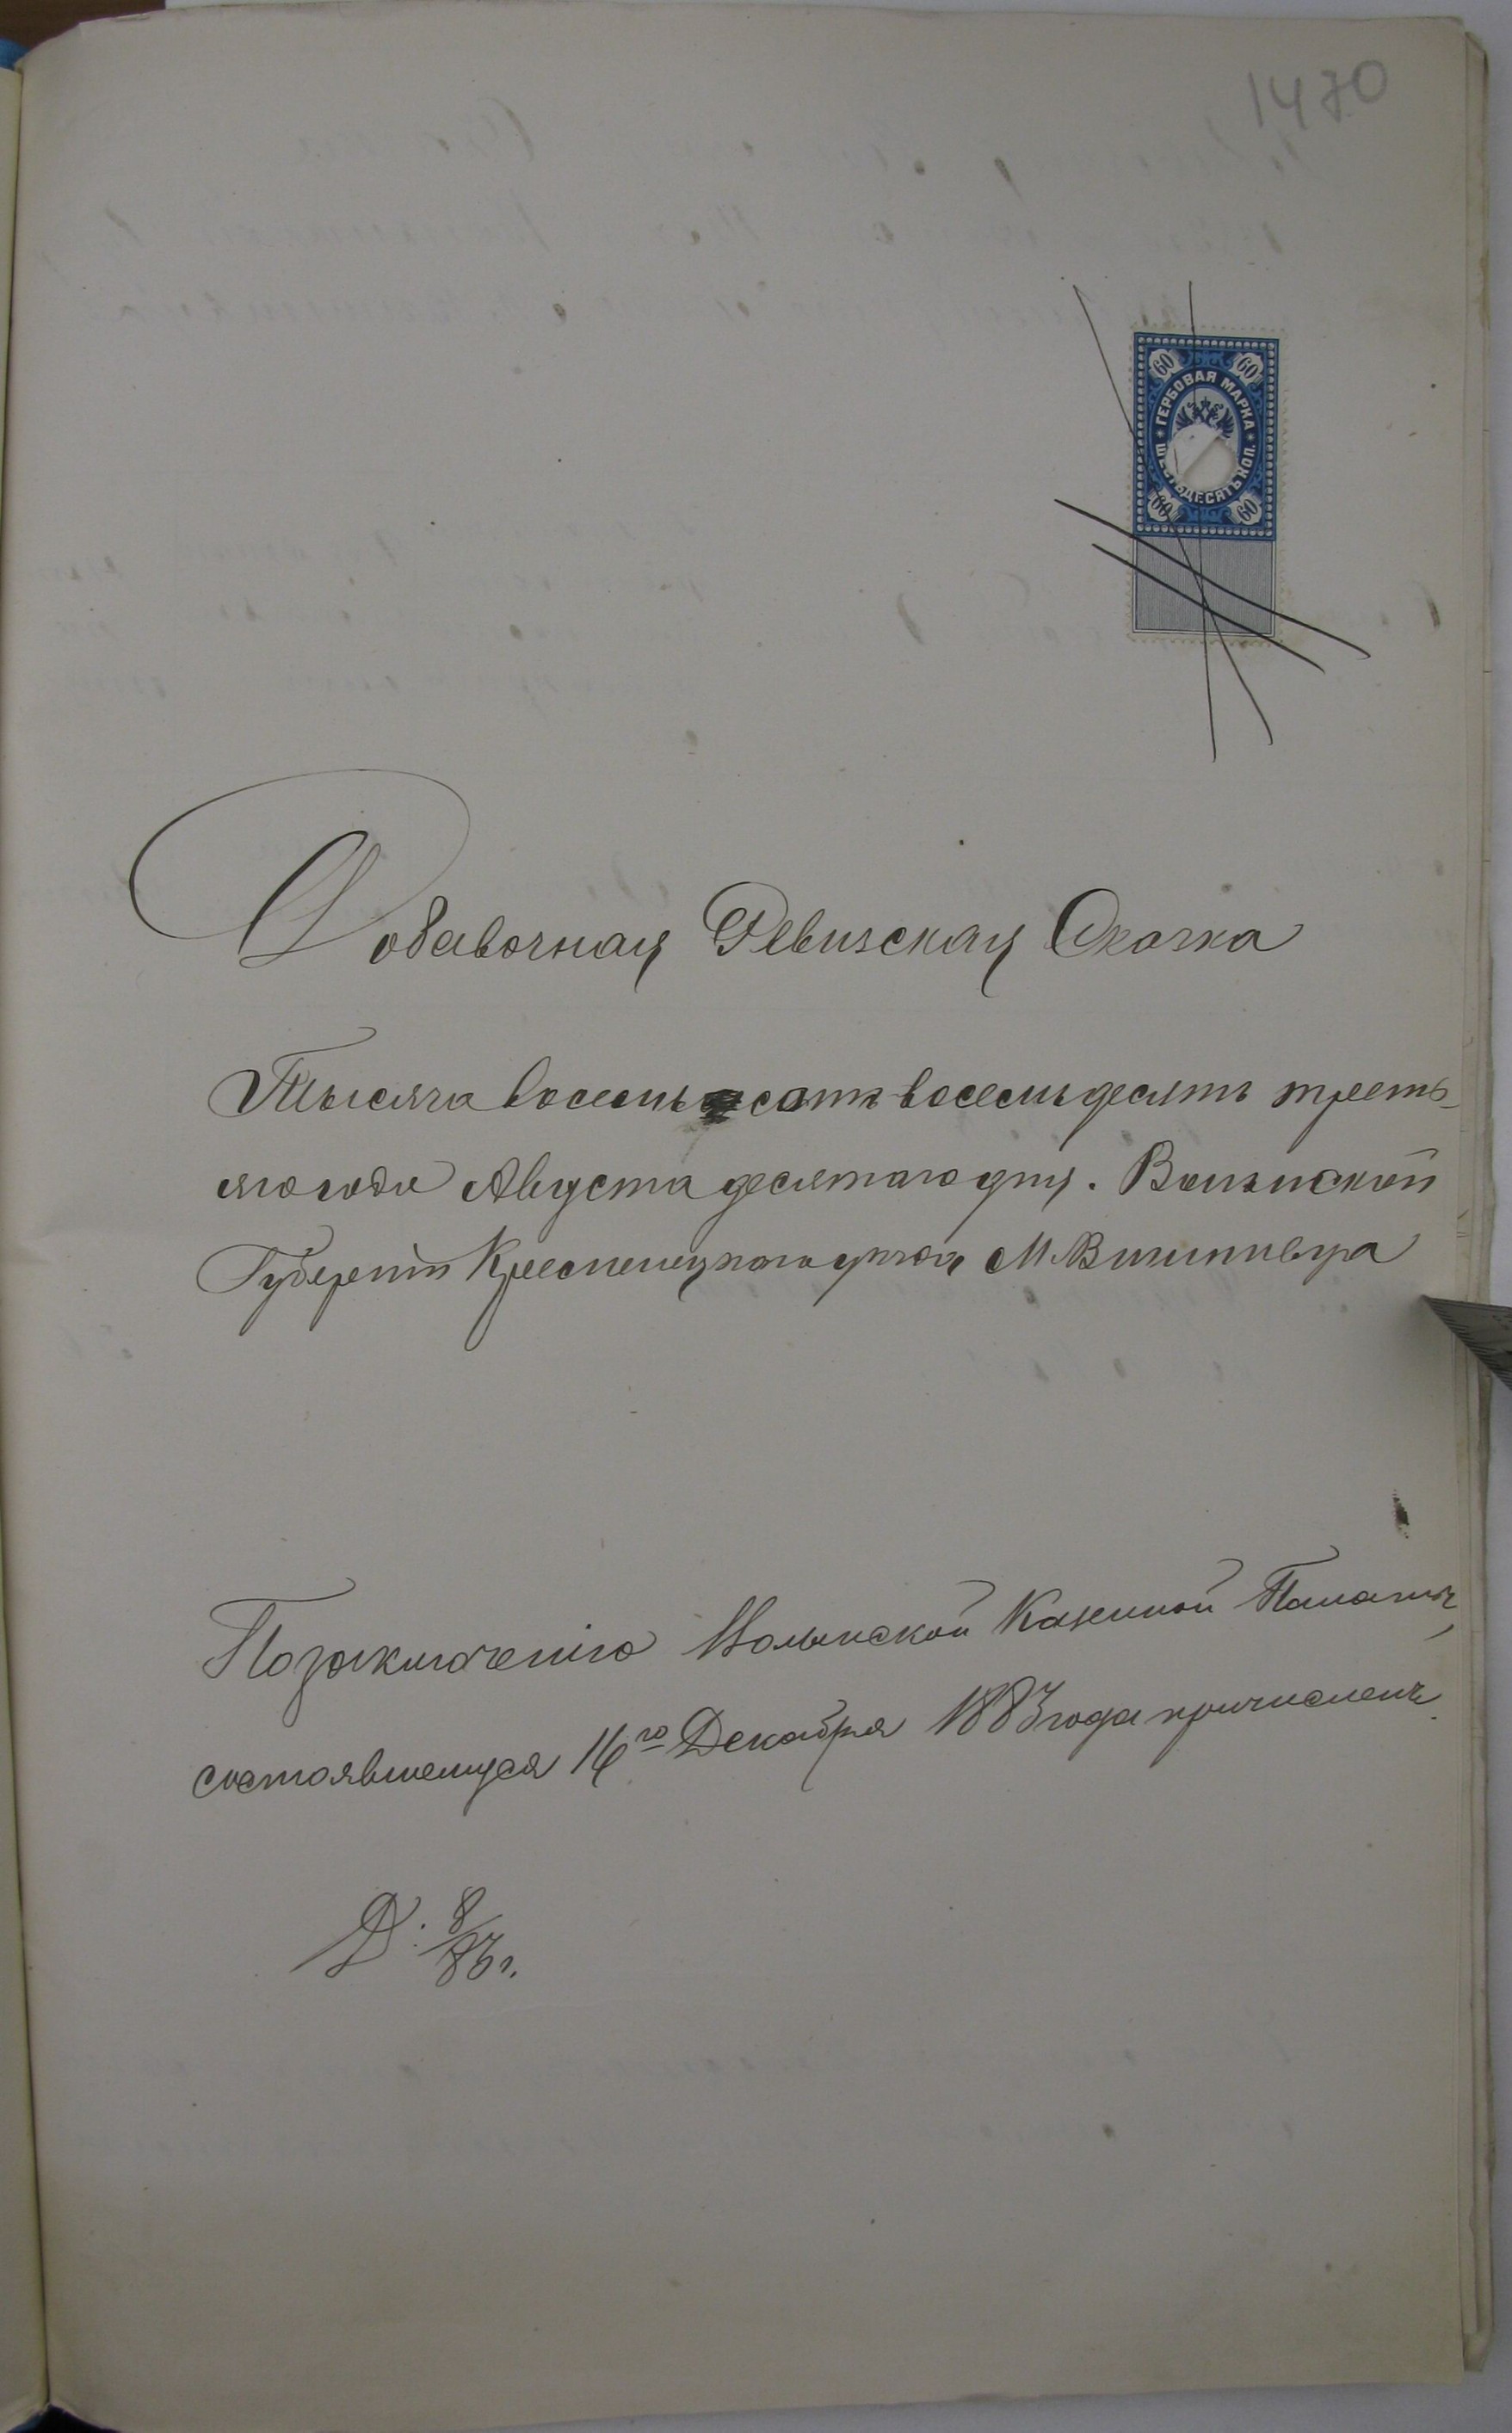 1470
60 60
ГЕРБОВАЯ МАРКА
ШЕСТЬДЕСЯТЪ КОП.
60 60
Добавочная Ревизская Сказка
Тысяча восемь сотъ восемьдесятъ треть-
яго года Августа десятаго дня. Волынской
Губерніи Кременецкаго уѣзда М. Вишневца
По заключенію Волынской Казенной Палаты,
состоявшемуся 16го Декабря 1883 года причисленъ
Д: 8/83 г.